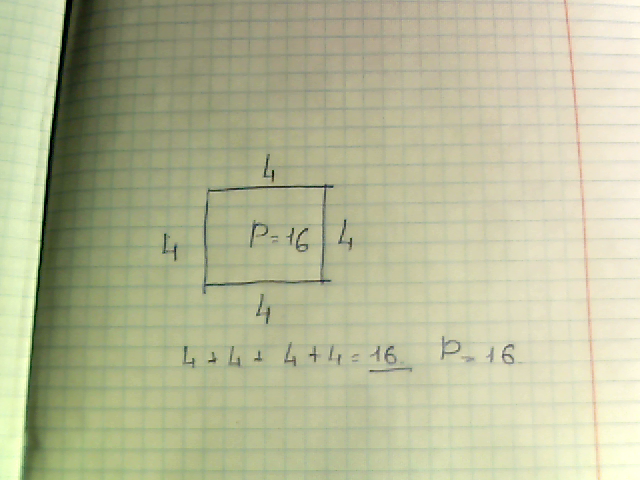 4
4 P=16 4
4
4 + 4 + 4 + 4 = 16 P = 16